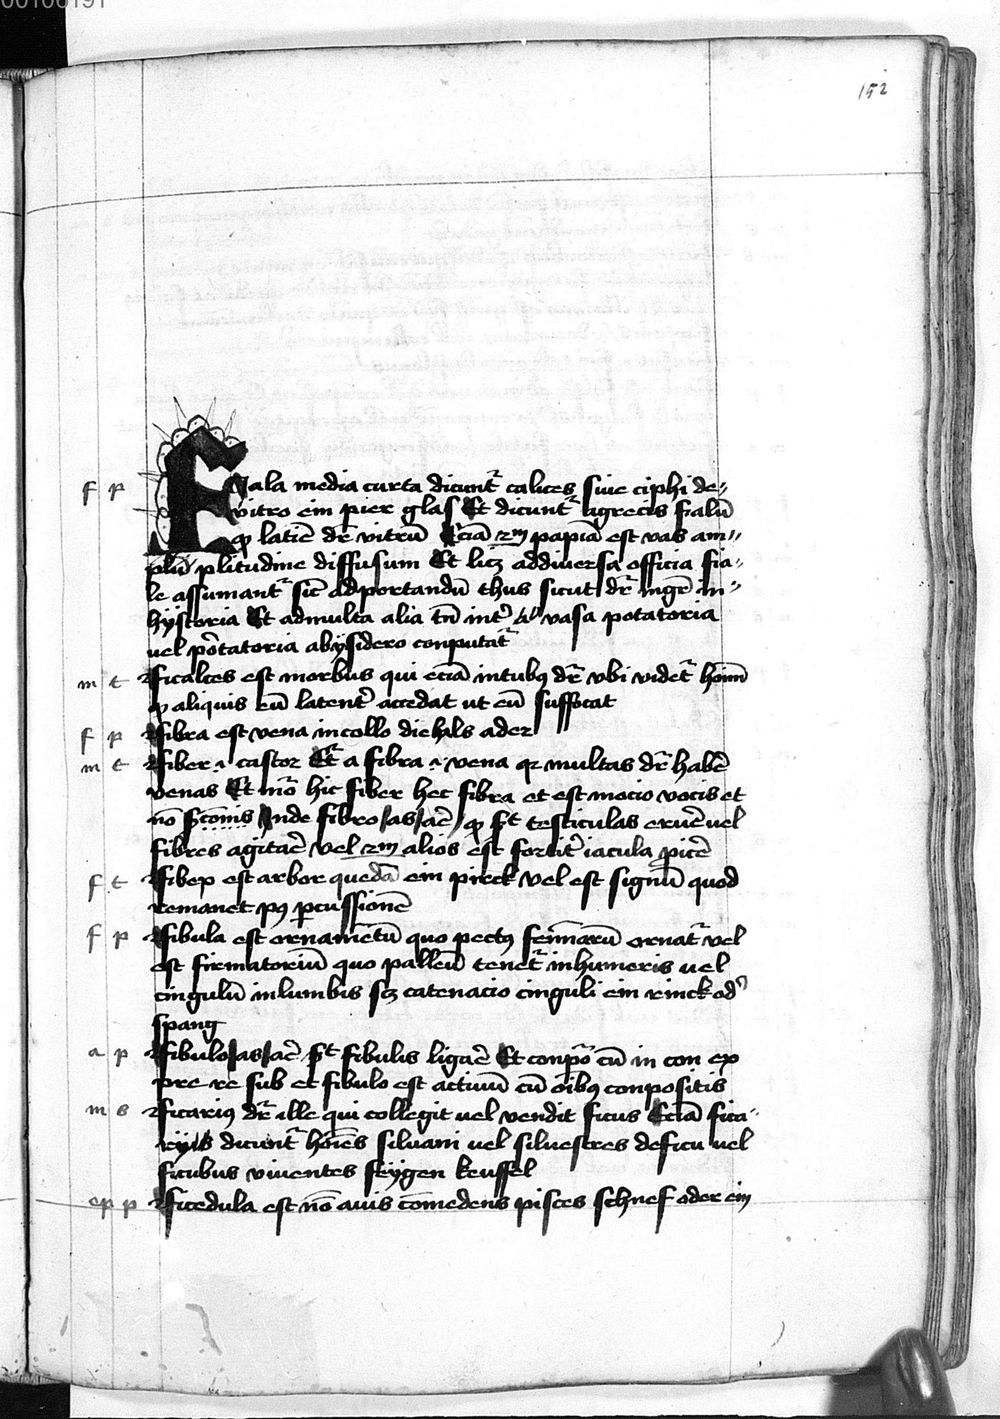 152
f p Fyala media curta dicunt᷑ calices siue ciphi de
vitro ein pier glas Et dicunt᷑ a grecis fialū
qꝫ latīe dr̄ vitrū Eciā ẜm papiā est vas am
plū plitudine diffusum Et licꝫ ad diuersa officia fia
le assumant᷑ sic̄ ad portandū thus sicut dr̄ in
hystoria Et ad multa alia tn̄ int᷑ vasa potatoria
uel potatoria ab ysidero conputat᷑
m t ficalces est morbus qui eciā intubꝰ dr̄ vbi videt᷑ hōini
aliquis eū latent᷑ accedat ut eū suffocat
f p fibra est vena in collo die hals ader
m t fiber i castor Et a fibra i vena qꝛ multas dr̄ habē
venas Et hic fiber hec fibra et est mocio vocis et
nō Inde fibro as aē testiculas eruē uel
fibres agitaē vel ẜm alios est fortit᷑ iacula
f t fibex est arbor quedā ein pirck vel est signū quod
remanet pꝰ ꝑcussionē
f p fibula est ornamētū quo pectꝰ feminarū ornat᷑ vel
est firmatoriū quo palleū tenet᷑ in humeris uel
cingulū in lumbis scꝫ catenacio cinguli ein rinck od᷑
spang
a p fibulo as aē fibulis ligaē Et conpo᷑ cū in con ex
pre re sub et fibulo est actiuū cū oībꝰ conpositis
m s ficariꝰ dr̄ ille qui collegit uel vendit ficus Eciā fica
rijs dicunt᷑ hoīes siluani uel siluestres de ficu uel
ficubus viuentes feygen keuffel
ep p ficedula est nō auis comedens pisces schnef oder ein